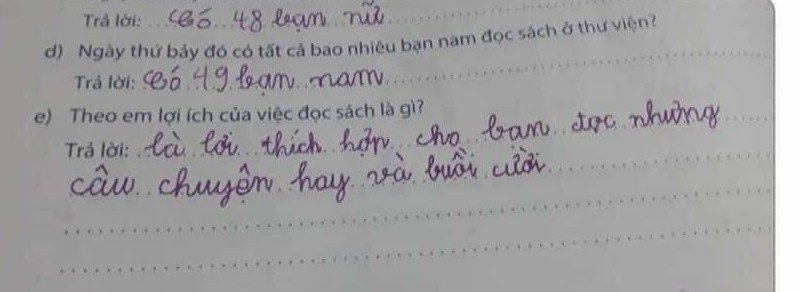 Trả lời: Có 48 bạn nữ
d) Ngày thứ bảy đó có tất cả bao nhiêu bạn nam đọc sách ở thư viện?
Trả lời: Có 49 bạn nam
e) Theo em lợi ích của việc đọc sách là gì?
Trả lời: là lời thích hợn cho bạn đọc nhưng
câu chuyện hay và buồi cười